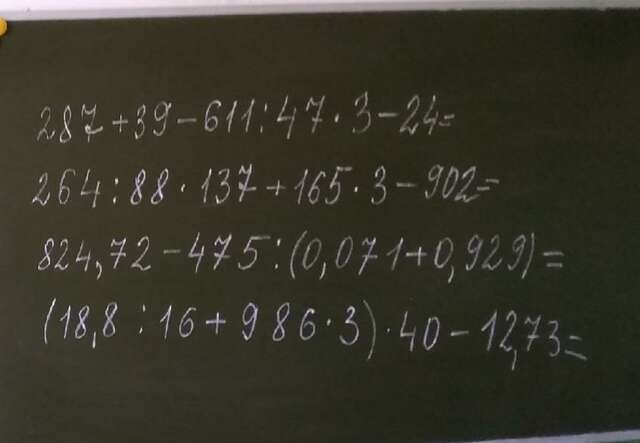 287+39-611:47·3-24=
264:88·137+165·3-902=
824,72-475:(0,071+0,929)=
(18,8:16+986·3)·40-12,73=